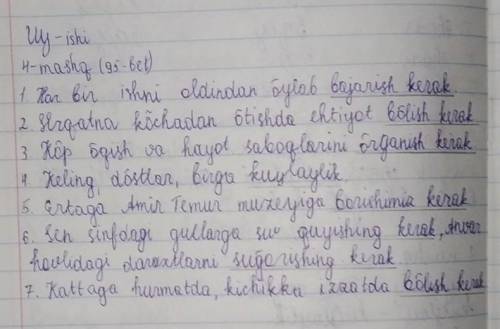 Uy-ishi
4-mashq (95-bet)
1. Har bir ishni oldindan öylab bajarish kerak
2. Serqatna köchadan ötishda ehtiyot bölish kerak
3. Köp öqish va hayot saboqlarini örganish kerak
4. Keling, döstlar, birga kuylaylik.
5. Ertaga Amir Temur muzeyiga borishimiz kerak
6. Sen sinfdagi gullarga suv quyishing kerak, Anvar
hovlidagi daraxtlarni sugorishing kerak
7. Kattaga hurmatda, kichikka izzatda bölish kerak